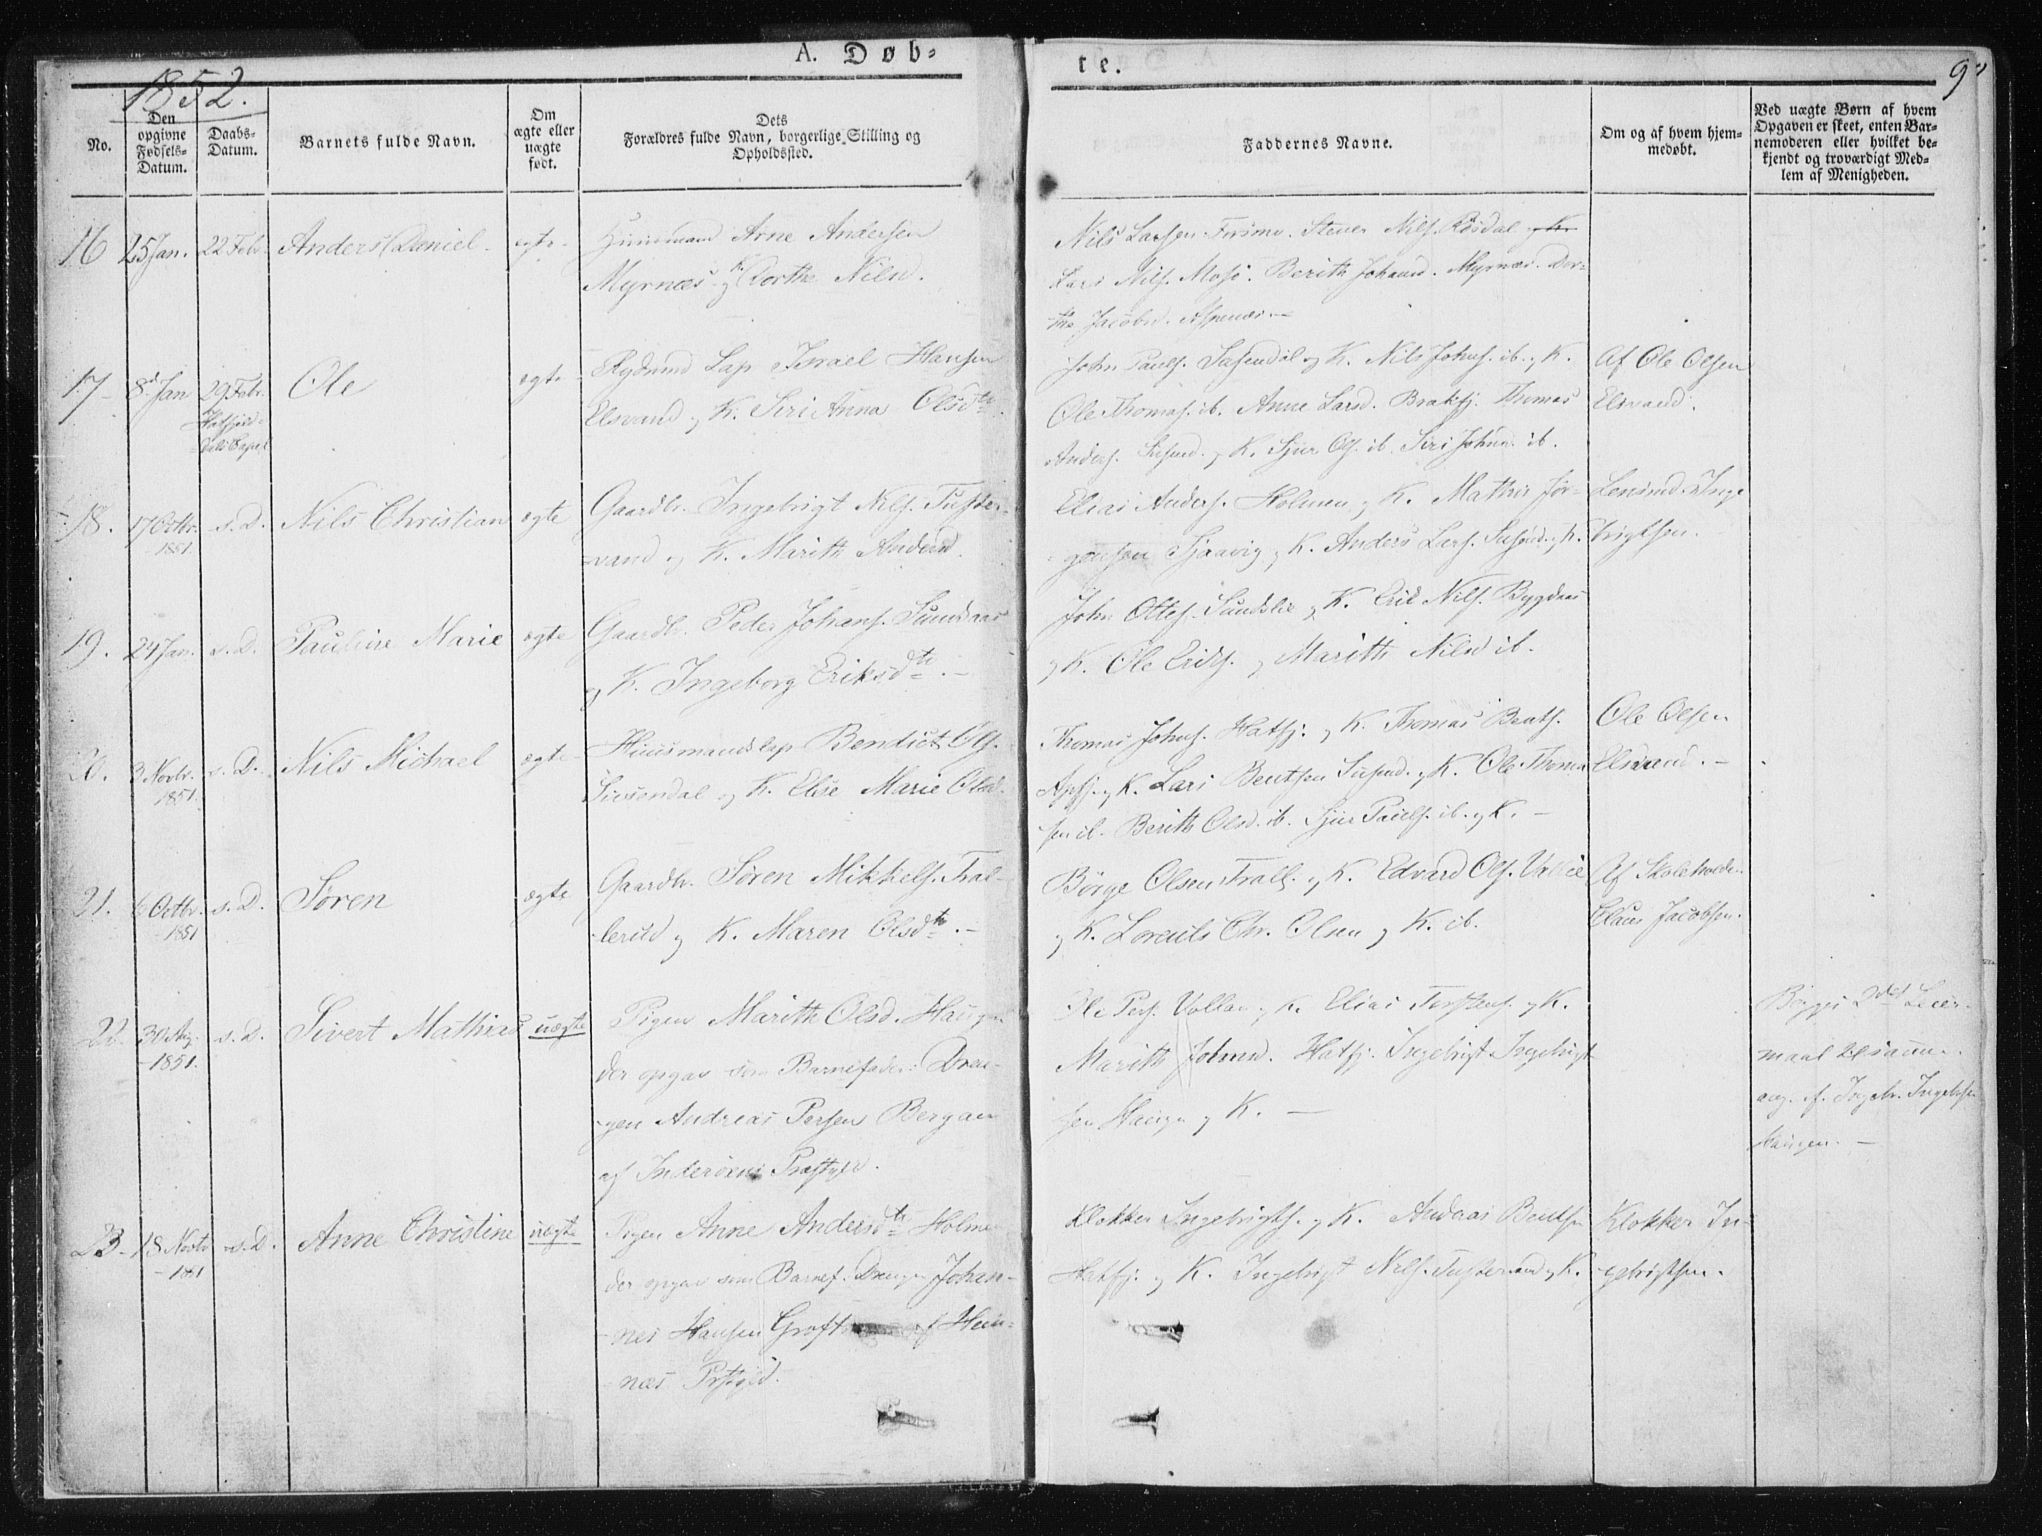 A. Døb-
te.
9
1852.
No.
Den opgivne Fødsels-Datum.
Daabs-Datum.
Barnets fulde Navn.
Om ægte eller uægte født.
Dets Forældres fulde Navn, borgerlige Stilling og Opholdssted.
Faddernes Navne.
Om og af hvem hjem-medøbt.
Ved uægte Børn af hvem Opgaven er skeet, enten Bar-nemoderen eller hvilket be-kjendt og troværdigt Med-lem af Menigheden.
16 25 Jan. 22 Febr. Anders Daniel. ægte.
Huusmand Arne Andersen
Myrnæs og K. Dorthe Nilsd.
Nils Larsen Stener Nils. Rösdal
Lars Nils. Mosö. Berith Johand. Myrnæs. Dor-
the Jacobd. Aspenæs. —
17 8d Jan 29 Febr. Ole ægte
Hatfjeld-
Dals Capel
Rydnind Lap Israel Hansen
Elsvand og K. Siri Anna Olsdtr.
John Pauls. Susendal og K. Nils Johns. ib. og K.
Ole Thomas. ib. Anne Larsd. Brakfj. Thomas
Anders. Susend. og K. Sjur Ols. ib. Siri Johnd. ib.
Af Ole Olsen
Elsvand.
18. 17 Octbr. s. D. Nils Christian ægte
1851.
Gaardbr. Ingebrigt Nils. Tuster-
vand og K. Marith Andersd.
Elias Anders. Holmen og K. Mathis Jör-
gensen Tjaavig og K. Anders Lars. Susend. og K.
Lensmd. Inge
brigtsen.
19. 24 Jan. s. D. Pauline Marie ægte
Gaardbr. Peder Johans. Sundaas
og K. Ingeborg Eriksdtr. —
John Ottes. Sundslie og K. Erik Nils. Bygdaas
og K. Ole Eriks. og Marith Nilsd ib.
20. 3 Novbr. s. D. Nils Michael ægte
1851.
Huusmandslap Bendict Ols.
Susendal og K. Else Marie Olsd.
Thomas Johns. Hatfj. og K. Thomas Bents.
og K. Lars Bentsen Susend. og K. Ole Thoma
sen ib. Berith Olsd. ib. Sjur Pauls. ib. og K. —
Ole Olsen
Elsvand. —
21. 6 Octbr. s. D. Søren ægte
1851
Gaardbr. Søren Mikkels. Tral-
lerud og K. Maren Olsdtr. —
Börge Olsen Trall. og K. Edvard Ols.
og K. Lorents Chr. Olsen og K. ib.
Af Skoleholder
Claus Jacobsen.
22. 30 Aug. s. D. Sivert Mathias uægte
1851.
Pigen Marith Olsd. Haugen
der opgav som Barnefader: Dren-
gen Andreas Persen Bergan
af Inderöens Præstgjeld.
Ole Pers. Vollan og K. Elias Torstens. og K.
Marith Johnsd. Hatfj. Ingebrigt Ingebrigt
sen Haugen og K. —
Begges 2det Leier-
maal
ang. af Ingebr. Ingebrsen
Haugen. —
23. 18 Novbr s. D. Anne Christine uægte
1851
Pigen Anne Andersdtr. Holmen
der opgav som Barnef. Drengen Johan-
nes Hansen af Hem-
næs Prstgjld.
Klokker Ingebrigts. og K. Andreas Bentsen
Hatfj. og K. Ingebrigt Nils. Tustervand og K.
Klokker In-
gebrigtsen.